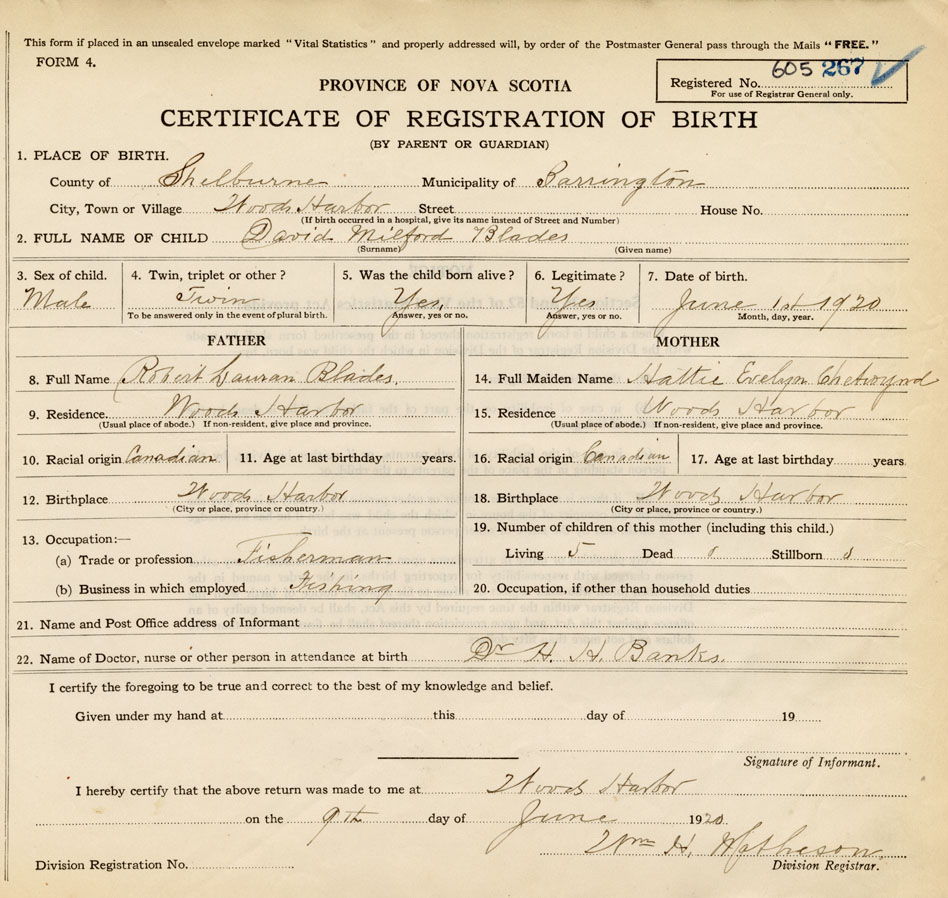 This form if placed in an unsealed envelope marked "Vital Statistics" and properly addressed will, by order of the Postmaster General pass through the Mails "FREE."
FORM 4.
Registered No. 605 267
For use of Registrar General only.
PROVINCE OF NOVA SCOTIA
CERTIFICATE OF REGISTRATION OF BIRTH
(BY PARENT OR GUARDIAN)
1. PLACE OF BIRTH.
County of Shelburne Municipality of Barrington
City, Town or Village Woods Harbor Street House No.
(If birth occurred in a hospital, give its name instead of Street and Number)
2. FULL NAME OF CHILD David Milford Blades
(Surname) (Given name)
3. Sex of child. 4. Twin, triplet or other? 5. Was the child born alive? 6. Legitimate? 7. Date of birth.
Male Twin Yes, Yes June 1st 1920
To be answered only in the event of plural birth. Answer, yes or no. Answer, yes or no. Month, day, year.
FATHER
8. Full Name Robert Lauran Blades.
9. Residence. Woods Harbor
(Usual place of abode.) If non-resident, give place and province.
10. Racial origin Canadian 11. Age at last birthday years.
12. Birthplace Woods Harbor
(City or place, province or country.)
13. Occupation:—
(a) Trade or profession Fisherman
(b) Business in which employed Fishing
MOTHER
14. Full Maiden Name Hattie Evelyn Chetwynd
15. Residence Woods Harbor
(Usual place of abode.) If non-resident, give place and province.
16. Racial origin Canadian 17. Age at last birthday years
18. Birthplace Woods Harbor
(City or place, province or country.)
19. Number of children of this mother (including this child.)
Living 5 Dead Stillborn
20. Occupation, if other than household duties
21. Name and Post Office address of Informant
22. Name of Doctor, nurse or other person in attendance at birth Dr H. H. Banks.
I certify the foregoing to be true and correct to the best of my knowledge and belief.
Given under my hand at this day of 19
Signature of Informant.
I hereby certify that the above return was made to me at Woods Harbor
on the 9th day of June 1920.
Wm H. Matheson.
Division Registration No. Division Registrar.